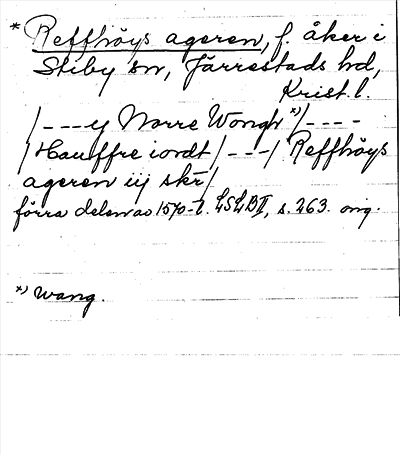 * Reffhöys ageren, f. åker i
Stiby sn, Järrestads hd,
Krist. l.
/---y Norre Wongh *)/----
/Hauffre iordt/---/ Reffhöys
ageren iij skr/
förra delen av 1570-t. LSLB II, s. 263. orig.
*) Wang.